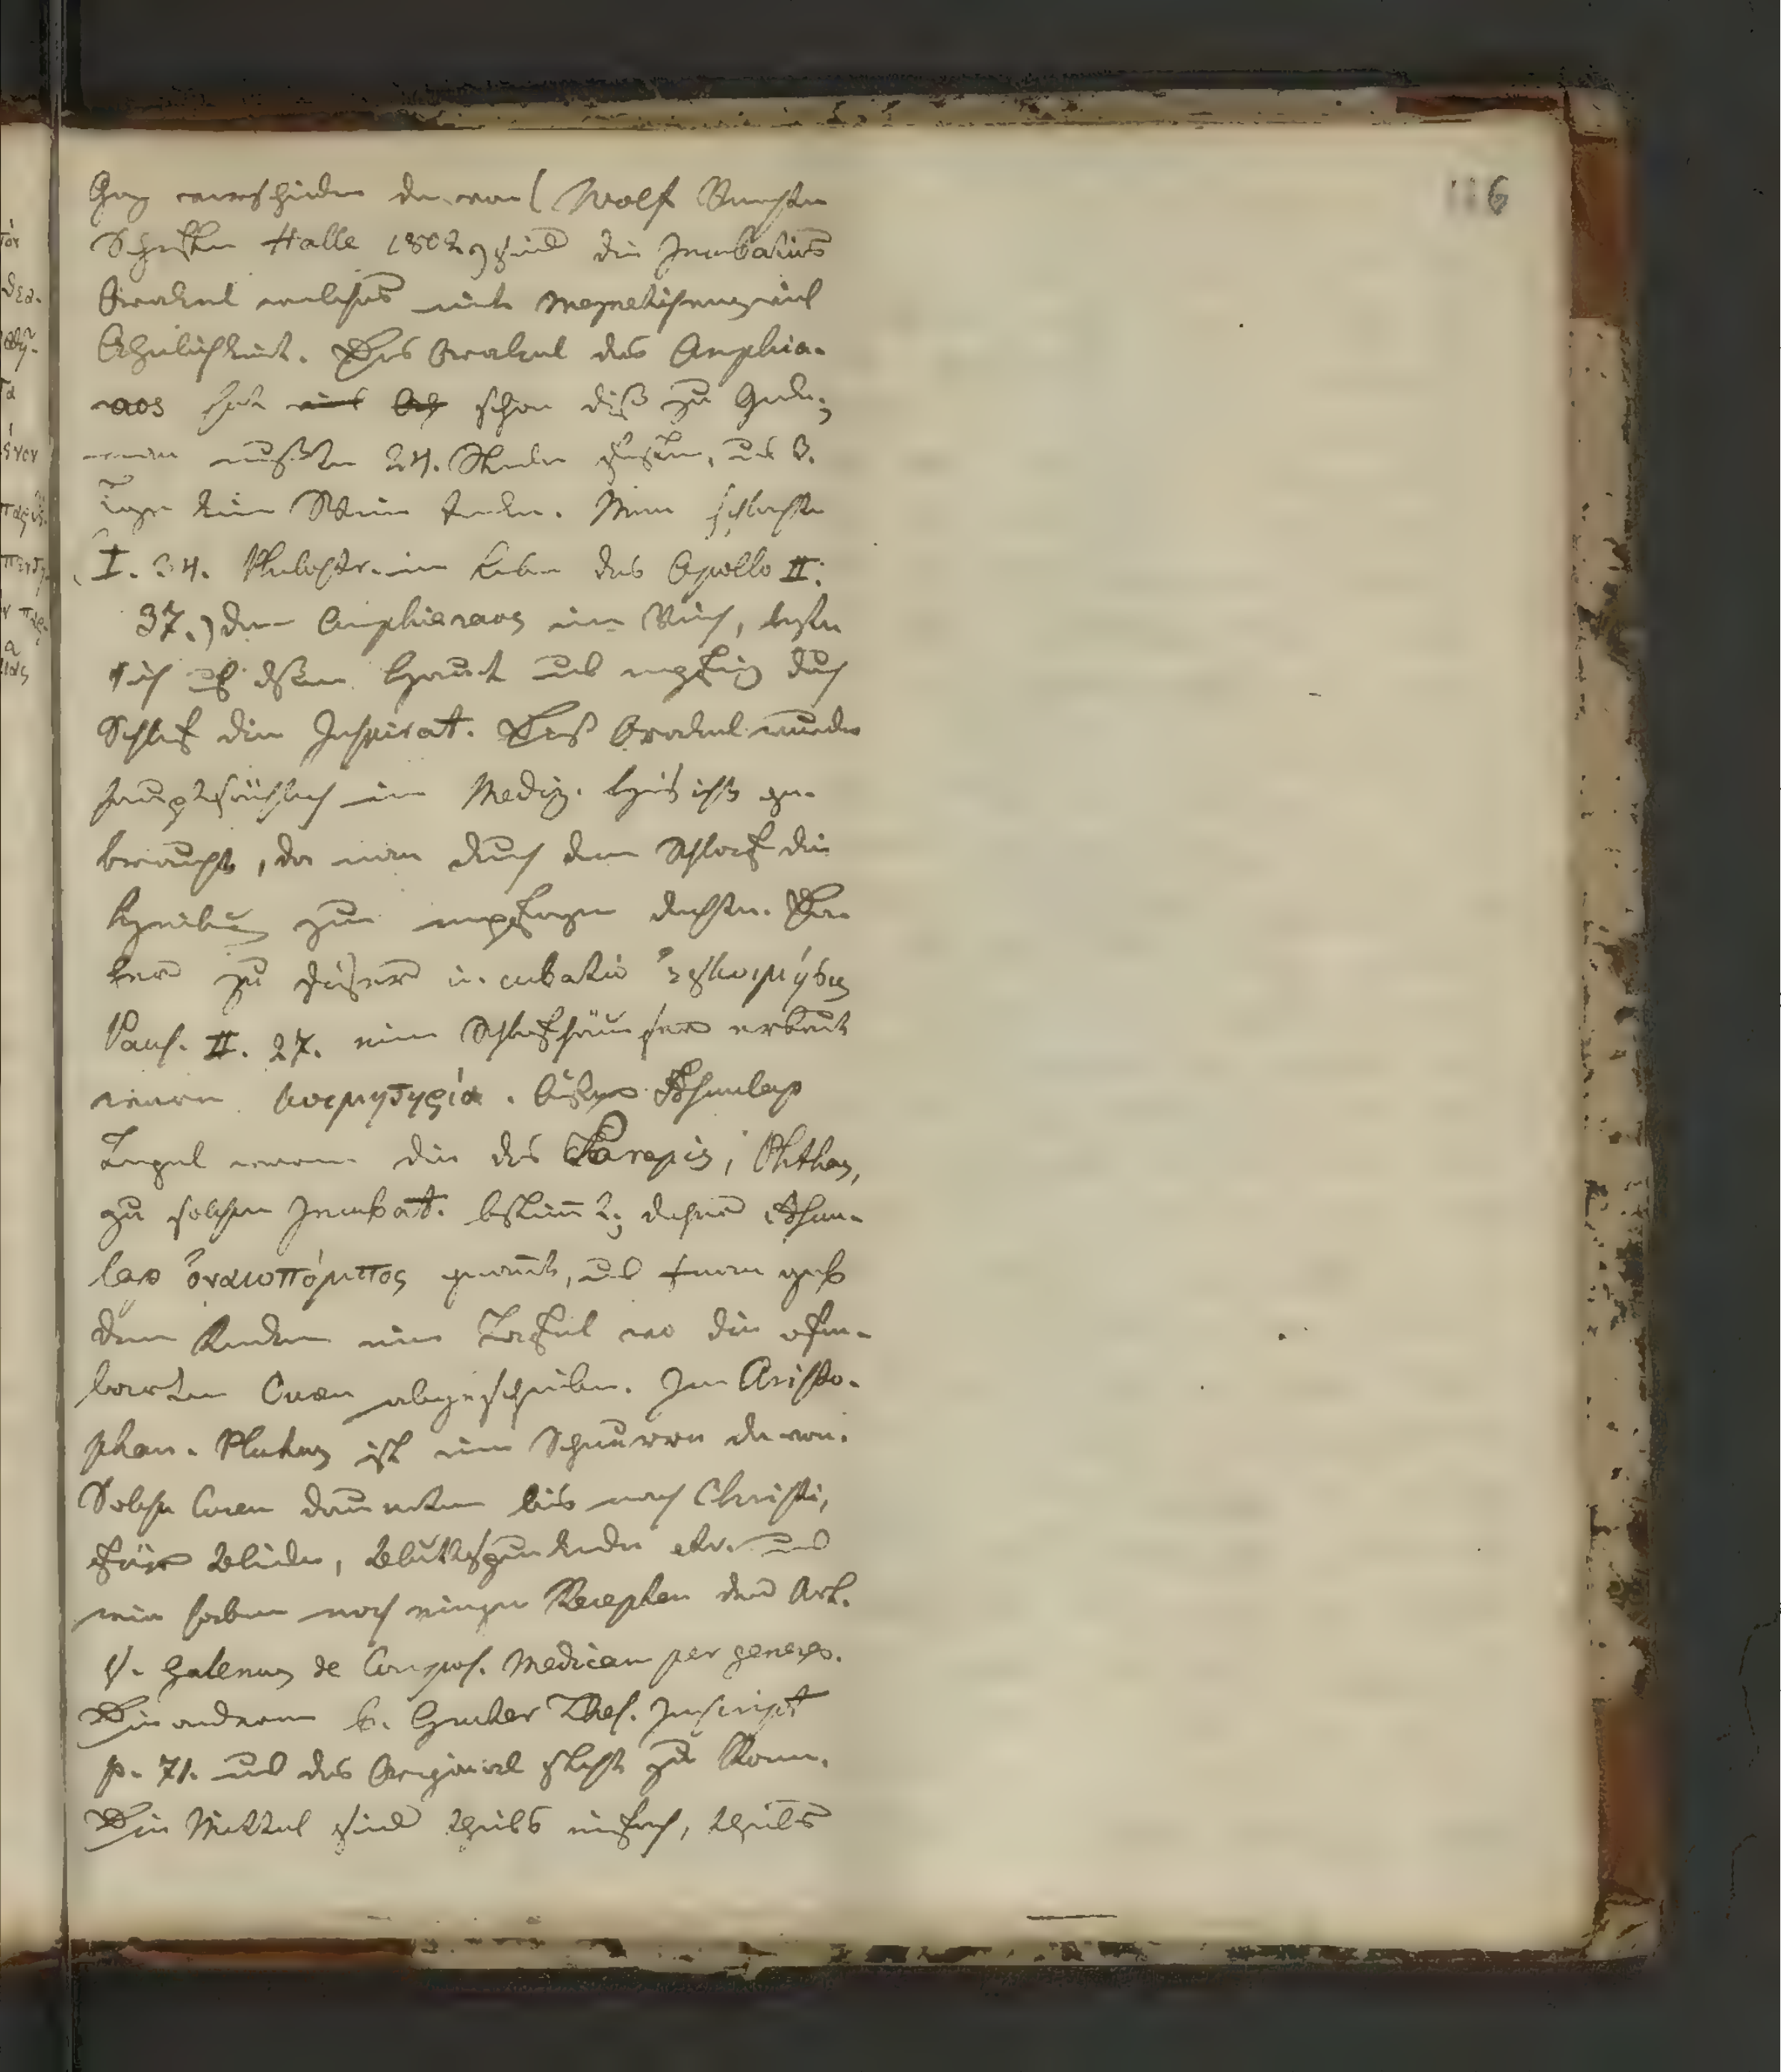 Ganz verschieden davon (Wolf Vermischte
Schriften Halle 1802) sind die Incubations
Orakel welches mit Magnetismus viel
Aehnlichkeit. Das Orakel des Amphia-
raos hat schon diß zu
mußten 24. Stunden fasten, und 3.
Tage kein Wein trinken. Man schlachtete
I. 34. Philostr. im Leben des Apollo II.
37.) dem Amphiaraos ein Vieh, legte
sich auf dessen Haut und empfing durch
Schlaf die Inspirat. Daß Orakel wurde
hauptsächlich in Mediz. Hinsicht ge-
braucht, da man durch den Schlaf die
Heilung zu empfangen dachte. Da
her zu dieser incubatio ἐγκοιμήσις
Paus. II. 27. eine Schlafhäuser erbaut
waren κοιμητηρία. Außer Äskulap
Tempel waren die des Serapis, Phthas,
zu solchen Incubat. bestimmt; daher Äsku-
lap ὀνειροπόμπος genannt, und man gab
dem Kranken eine Tafel wo die offen-
barten Curen abgeschrieben. Im Aristo-
phan. Plutus ist eine Schnurre davon.
Solche Curen dauerten bis nach Christi,
für Blinde, Blutspeiende etc. und
wir haben noch einige Recepten der Art.
v. Galenus de Compos. Medicam per genera.
Die anderen b. Gruter Thes. Inscript
p. 71. und das Original steht zu Rom.
Die Mittel sind theils einfach, theils
116